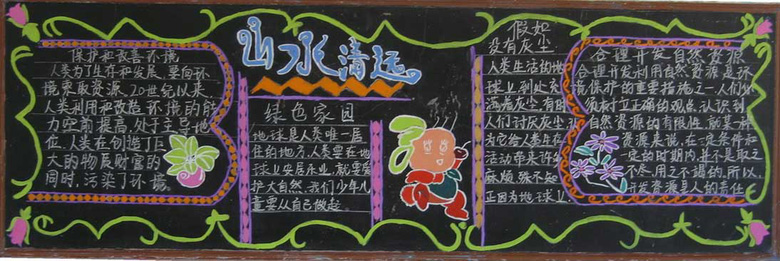 保护和改善环境
人类为了生存和发展，要向环
境索取资源，20世纪以来，
人类利用和改造环境的能
力空前提高，处于主导地
位，人在创造了巨
大的物质财富的
同时，污染了环境。
山水清运
绿色家园
地球是人类唯一居
住的地方，人类要在地
球上安居乐业，就要爱
护大自然，我们少年儿
童要从自己做起。
假如
没有灰尘
人类生活的地
球上到处充
满着灰尘，有时
人们讨厌灰尘
为它给人类生活
活动带来许
麻烦，殊不知
正因为地球上
合理开发自然资源
合理开发利用自然资源是环
境保护的重要措施之一，人们必
须树立正确的观点，认识到
自然资源的有限性，就某一种
资源来说，在一定条件和
一定的时期内，并不是取之
不尽，用之不竭的，所以，
开发资源是人的责任